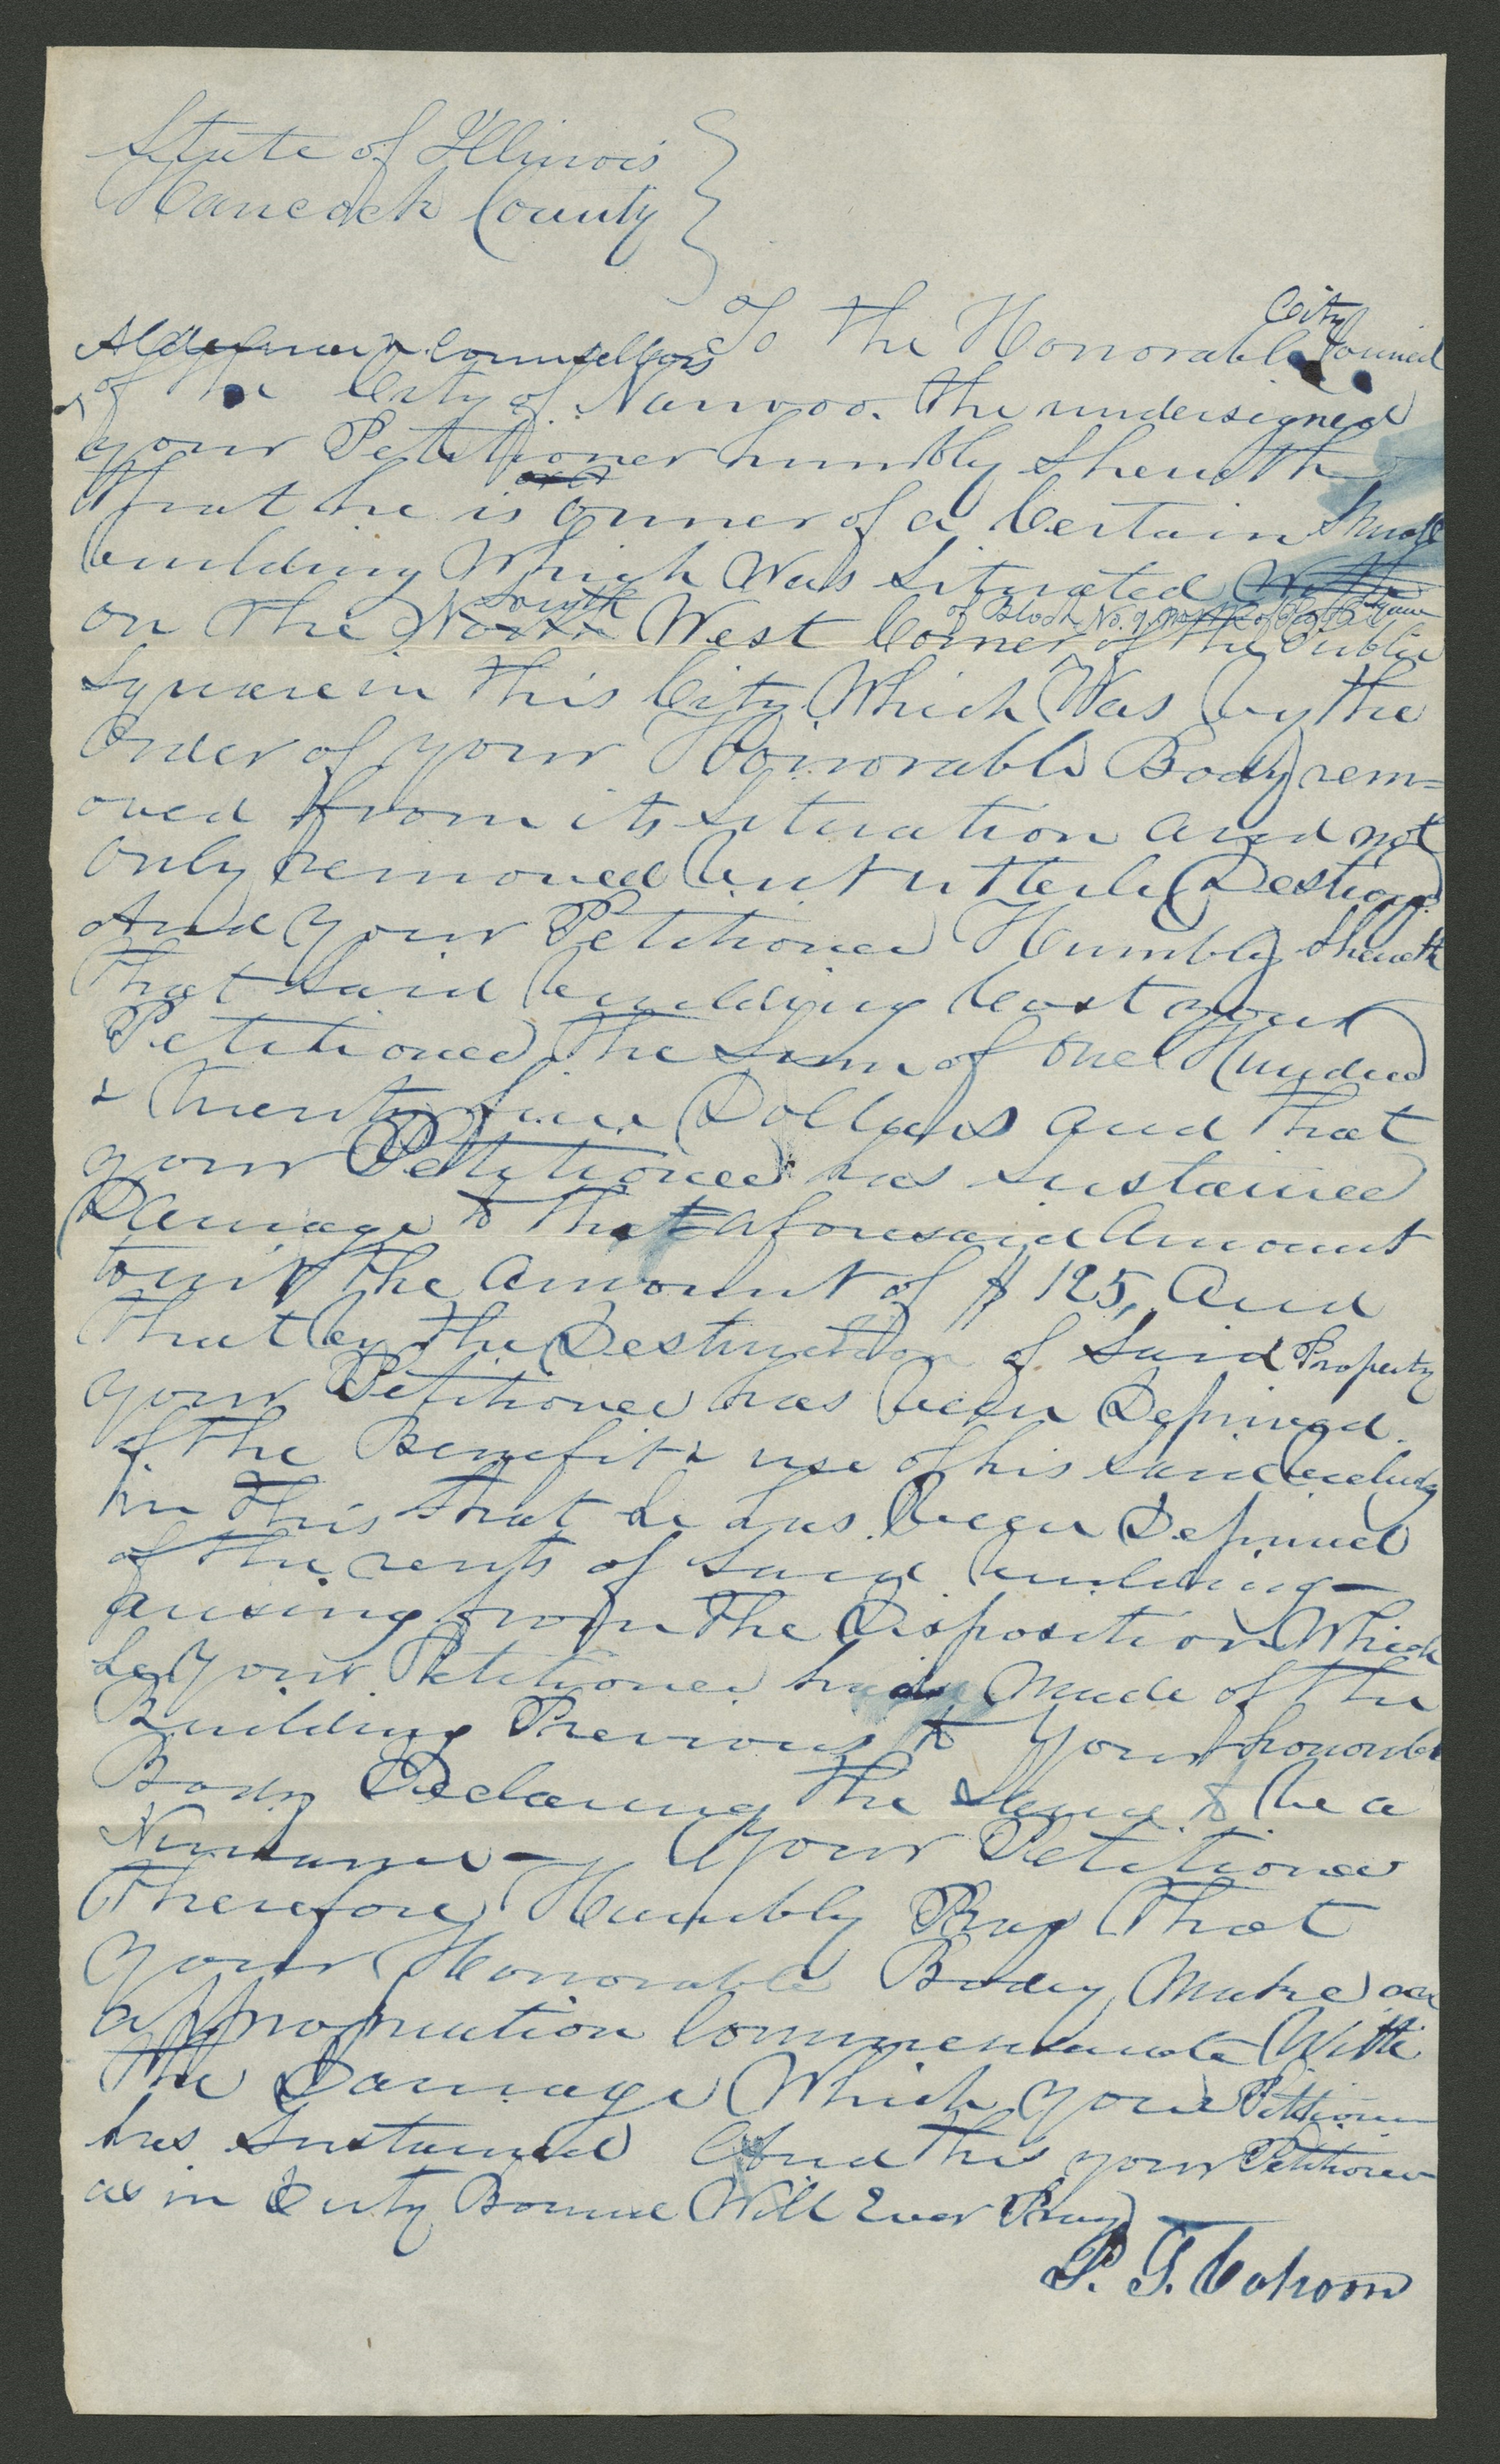 State of Illinois
Hancock County
To the Honorable City Council
Aldermen & Counsellors
of the City of Nauvoo. the undersigned
your Petitioner humbly Sheweth
that he is owner of a Certain Small
building Which Was Situated
South
of Block No. 9
on the North West Corner of the Public
Square in this City Which Was by the
Order of your Honorable Body rem=
oved from its Situation and not
only removed but utterly Destroyed
And your Petitioner Humbly Sheweth
that Said building Cost your
Petitioner the Sum of One Hundred
& twenty five Dollars and that
your Petitioner has Sustained
Damage to that aforesaid Amount
towit the Amount of $125, and
that by the Destruction of Said Property
your Petitioner has been Deprived
of the Benefit & use of his said building
in this that he has been Deprived
of the rents of Said building
arising from the Disposition Which
he your Petitioner had made of the
Building Previous to Your honorable
Body Declaring the Same to be a
Nuisance - Your Petitioner
therefore Humbly Pray that
your Honorable Body Make an
appropriation Commensurate With
the Damage Which your Petitioner
has Sustained And this your Petitioner
as in Duty Bound Will Ever Pray
P. T. Cahoon